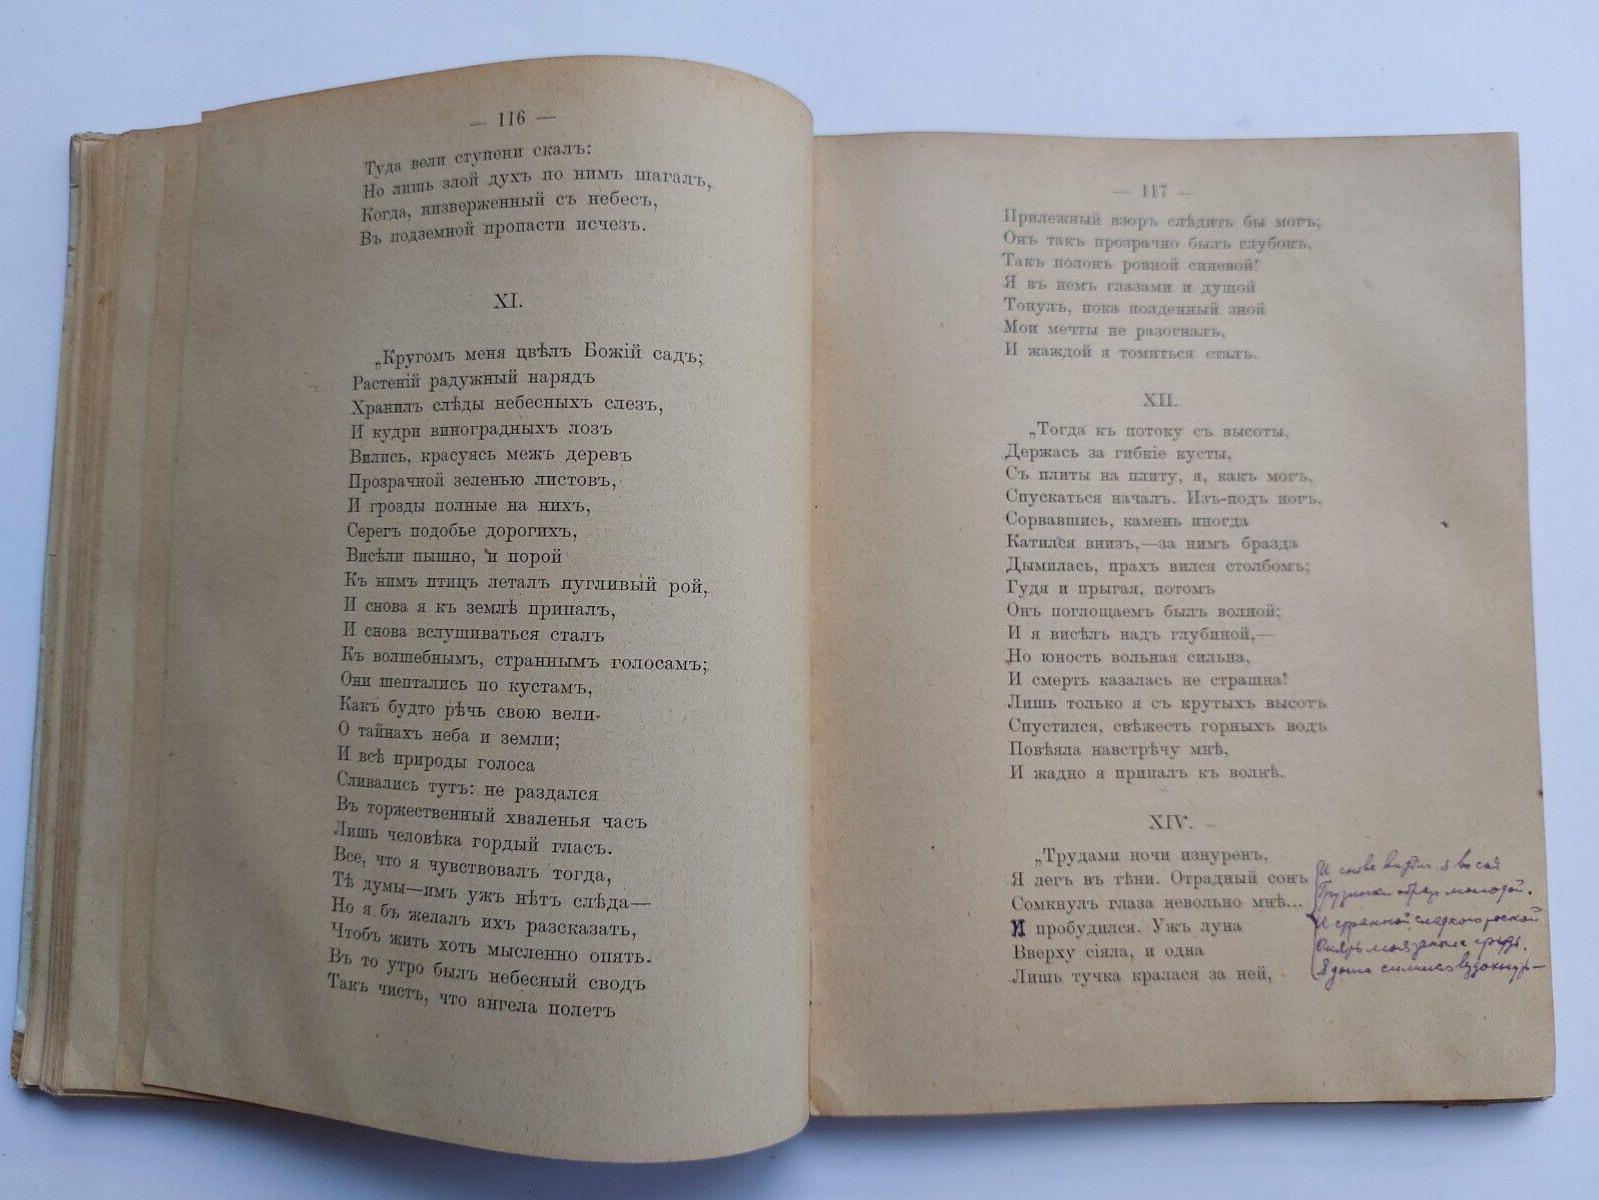 — 116 —
Туда вели ступени скалъ:
Но лишь злой духъ по нимъ шагалъ,
Когда, низверженный съ небесъ,
Въ подземной пропасти исчезъ.
XI.
„Кругомъ меня цвѣлъ Божій садъ;
Растеній радужный нарядъ
Хранилъ слѣды небесныхъ слезъ,
И кудри виноградныхъ лозъ
Вились, красуясь межъ деревъ
Прозрачной зеленью листовъ,
И грозды полные на нихъ,
Серегъ подобье дорогихъ,
Висѣли пышно, и порой
Къ нимъ птицъ леталъ пугливый рой,
И снова я къ землѣ припалъ,
И снова вслушиваться сталъ
Къ волшебнымъ, страннымъ голосамъ;
Они шептались по кустамъ,
Какъ будто рѣчь свою вели
О тайнахъ неба и земли;
И всѣ природы голоса
Сливались тутъ: не раздался
Въ торжественный хваленья часъ
Лишь человѣка гордый гласъ.
Все, что я чувствовалъ тогда,
Тѣ думы—имъ ужъ нѣтъ слѣда—
Но я бъ желалъ ихъ разсказать,
Чтобъ жить хоть мысленно опять.
Въ то утро былъ небесный сводъ
Такъ чистъ, что ангела полетъ
— 117 —
Прилежный взоръ слѣдить бы могъ;
Онъ такъ прозрачно былъ глубокъ,
Такъ полонъ ровной синевой!
Я въ немъ глазами и душой
Тонулъ, пока полденный зной
Мои мечты не разогналъ,
И жаждой я томиться сталъ.
XII.
„Тогда къ потоку съ высоты,
Держась за гибкіе кусты,
Съ плиты на плиту, я, какъ могъ,
Спускаться началъ. Изъ-подъ ногъ,
Сорвавшись, камень иногда
Катился внизъ,—за нимъ бразда
Дымилась, прахъ вился столбомъ;
Гудя и прыгая, потомъ
Онъ поглощаемъ былъ волной;
И я висѣлъ надъ глубиной,—
Но юность вольная сильна,
И смерть казалась не страшна!
Лишь только я съ крутыхъ высотъ
Спустился, свѣжесть горныхъ водъ
Повѣяла навстрѣчу мнѣ,
И жадно я припалъ къ волнѣ.
XIV.
„Трудами ночи изнуренъ,
Я легъ въ тѣни. Отрадный сонъ
Сомкнулъ глаза невольно мнѣ...
И пробудился. Ужъ луна
Вверху сіяла, и одна
Лишь тучка кралася за ней,
И снова видѣл я во
Грузинки образ молодой.
И странной, сладкою тоской
Опять моя заныла грудь.